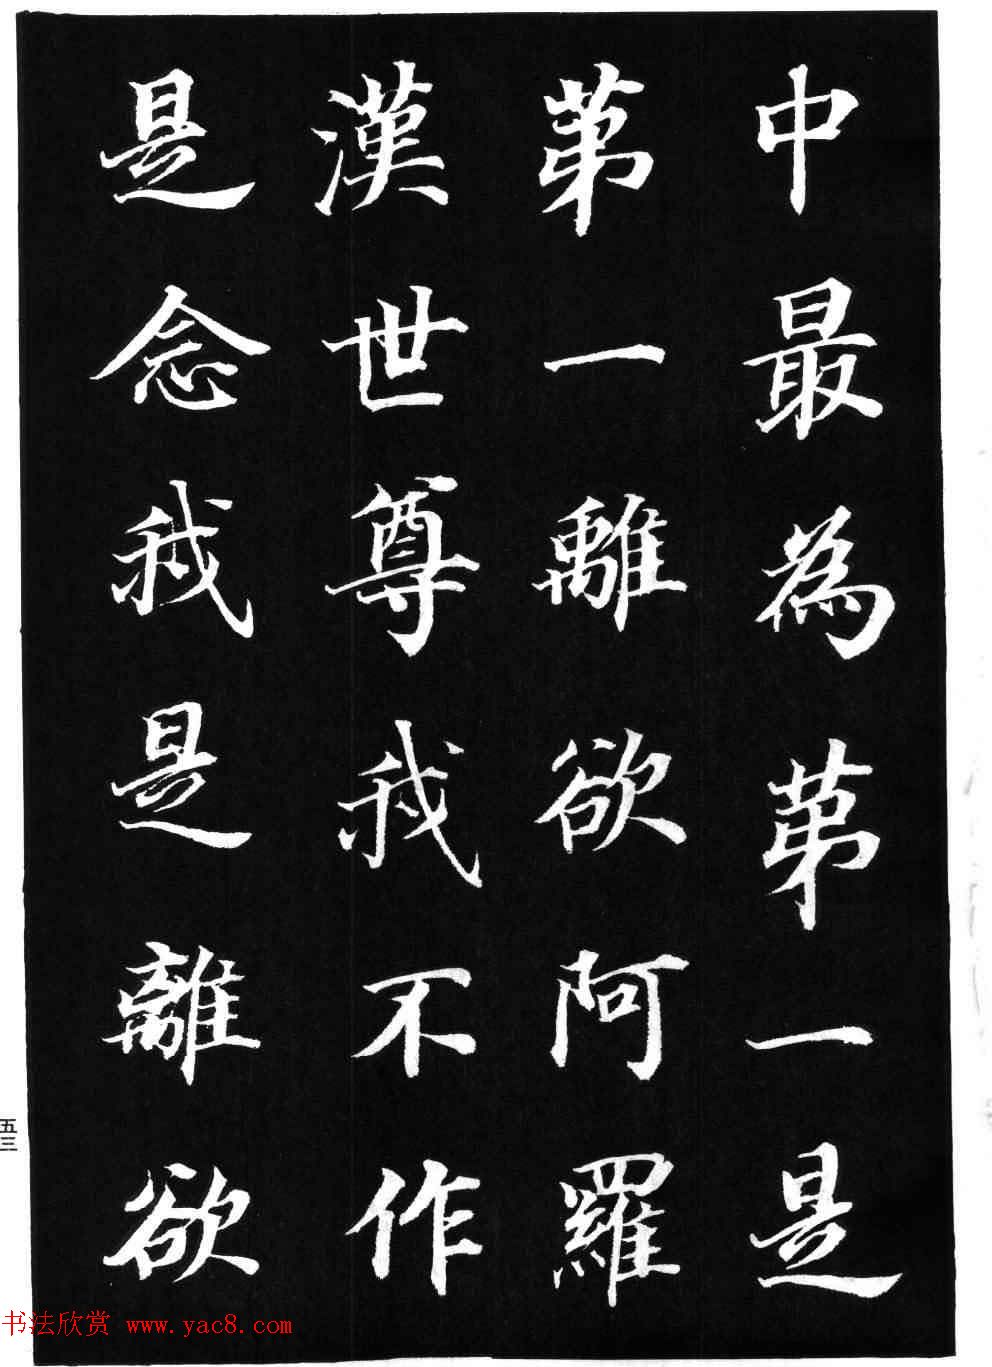 中最為第一是
第一離欲阿羅
漢世尊我不作
是念我是離欲
五三
书法欣赏 www.yac8.com